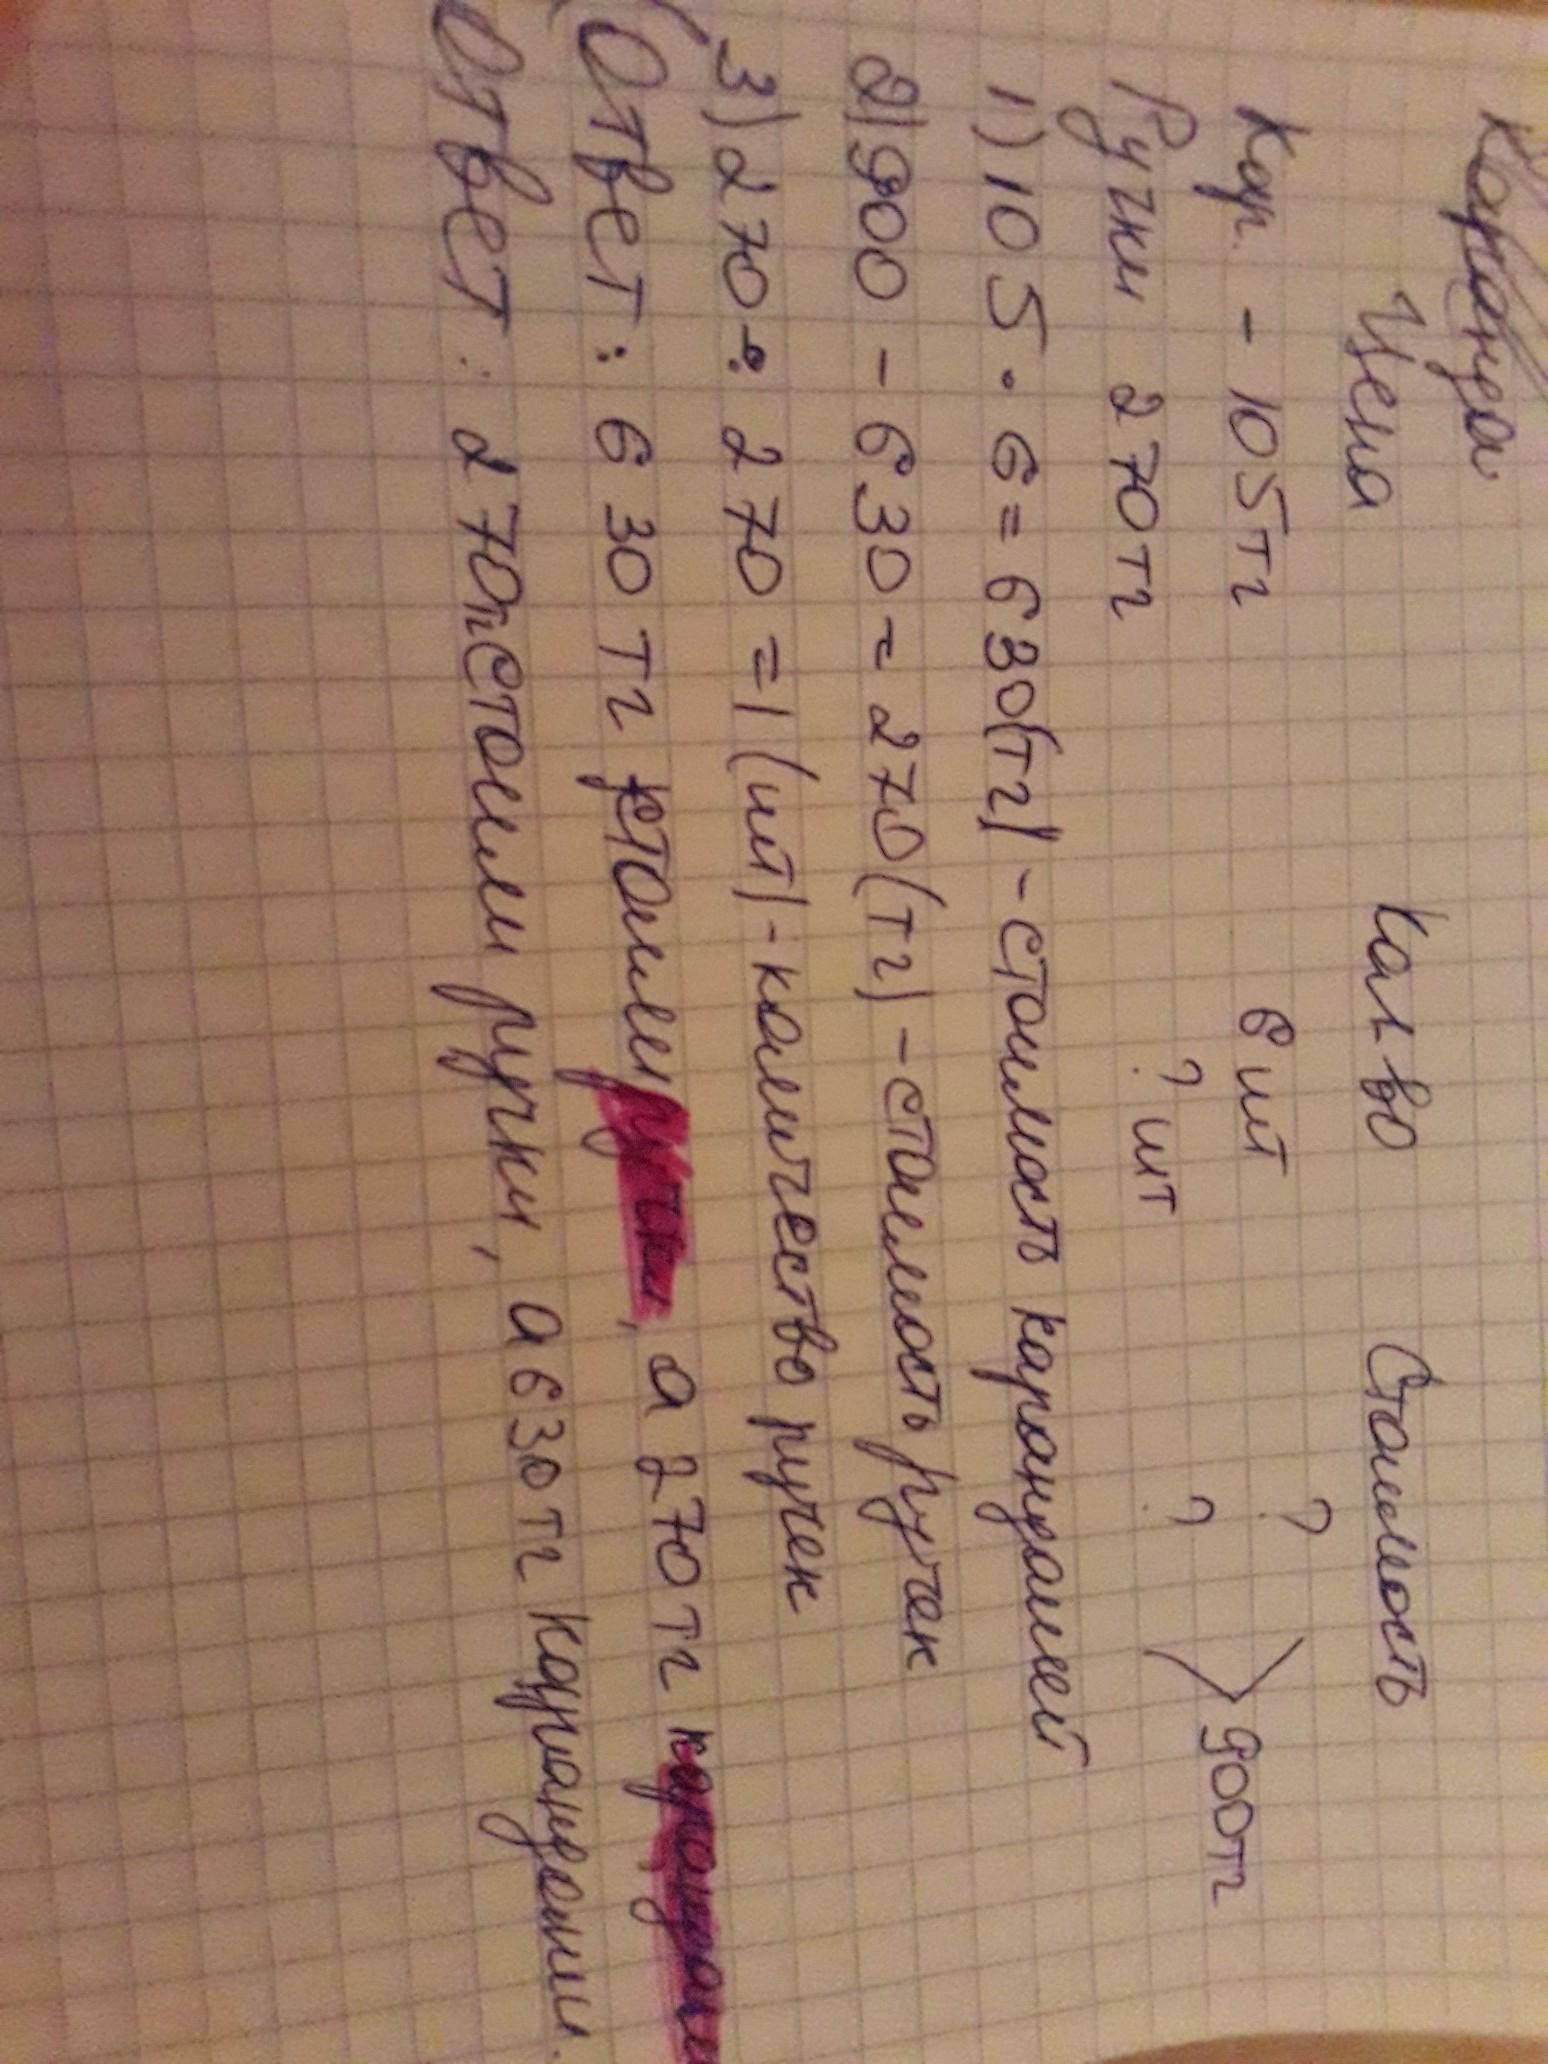 Цена Кол-во Стоимость
Кар. - 105тг 6 шт ?
Ручки 270тг ? шт ? 900тг
1) 105 · 6 = 630(тг) - стоимость карандашей
2) 900 - 630 = 270(тг) - стоимость ручек
3) 270 : 270 = 1 (шт) - количество ручек
Ответ: 630 тг стоили ручки, а 270 тг карандаши
Ответ: 270тг стоили ручки, а 630тг карандаши.